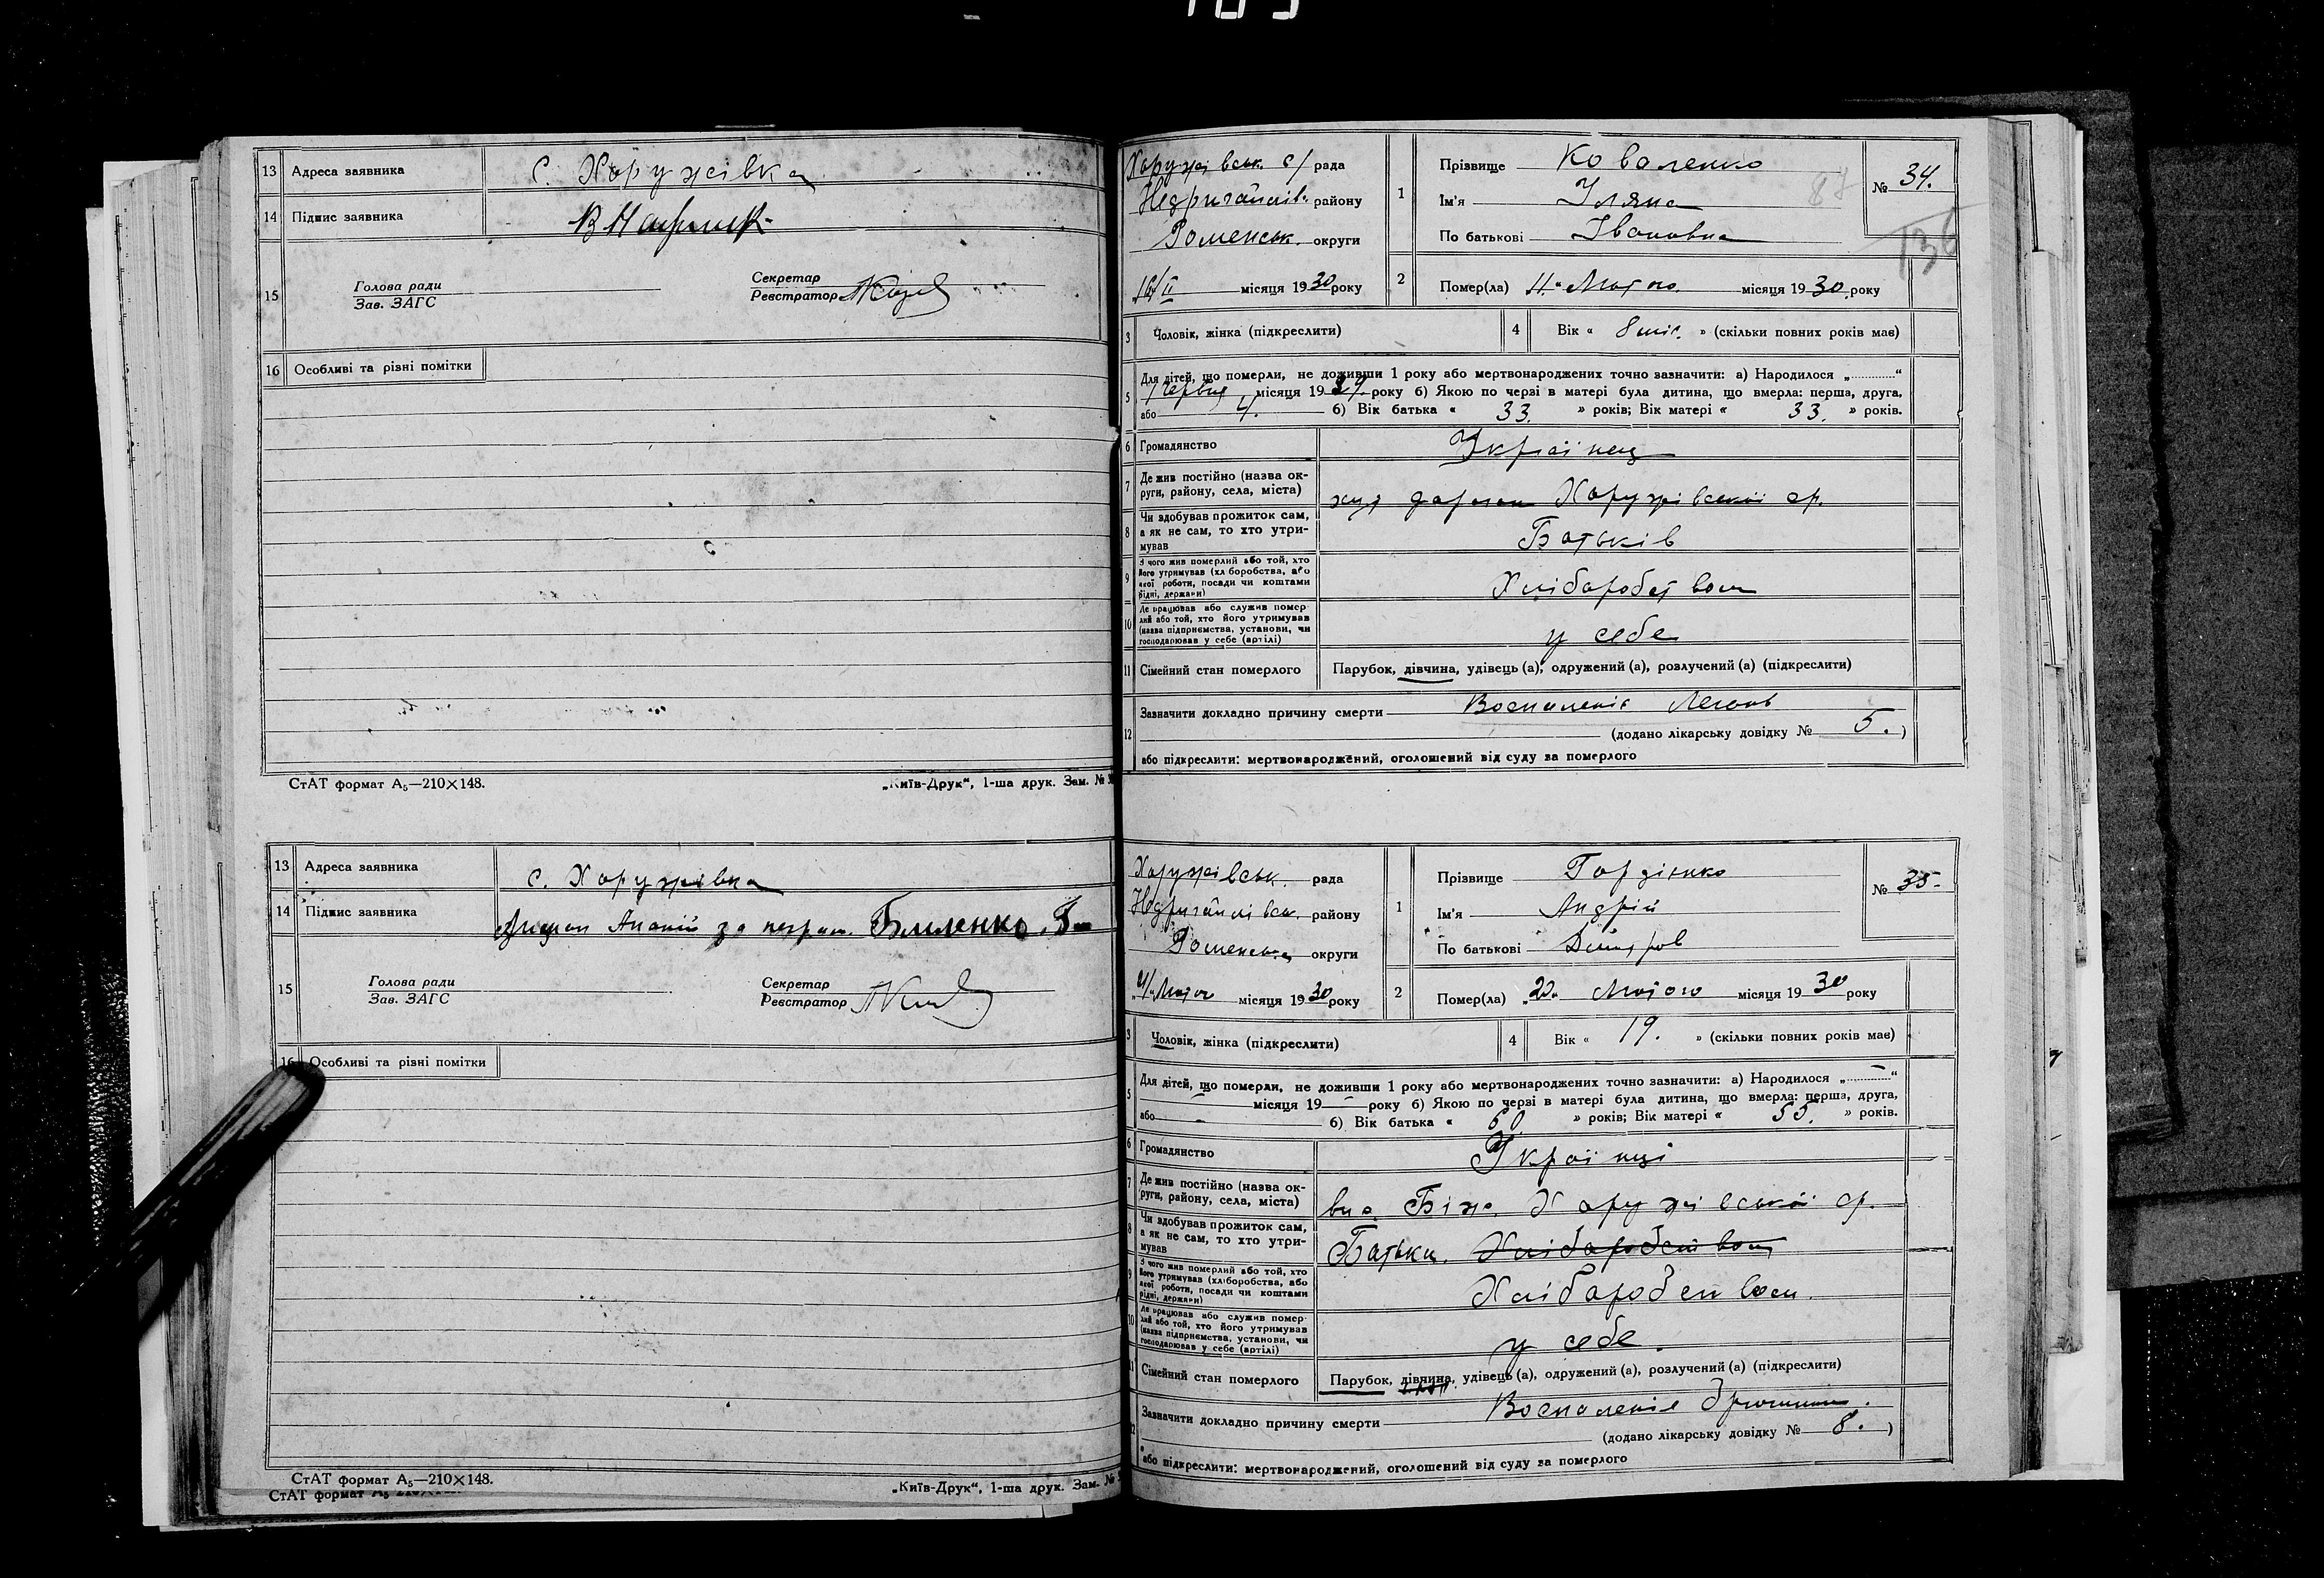 13 Адреса заявника с. Хоружівка
14 Підпис заявника
15 Голова ради Секретар
Зав. ЗАГС Реєстратор
16 Особливі та різні помітки
СтАТ формат А5—210×148. „Київ-Друк“, 1-ша друк. Зам. №
13 Адреса заявника с. Хоружівка
14 Підпис заявника за неграм. Біленко
15 Голова ради Секретар
Зав. ЗАГС Реєстратор
16 Особливі та різні помітки
СтАТ формат А5—210×148. „Київ-Друк“, 1-ша друк. Зам. №
СтАТ формат А5
Хоружівськ. с/ рада
район у
Роменськ. округи
16/II місяця 1930 року
1 Прізвище Коваленко
Ім'я Уляна
По батькові Івановна
№ 34.
2 Помер(ла) 11 Лютого місяця 1930 року
3 Чоловік, жінка (підкреслити) 4 Вік « 8 міс. » (скільки повних років мав)
5 Для дітей, що померли, не доживши 1 року або мертвонароджених точно зазначити: а) Народилося „ “
Червня місяця 1929. року б) Якою по черзі в матері була дитина, що вмерла: перша, друга,
або 4. б) Вік батька « 33. » років; Вік матері « 33. » років.
6 Громадянство Українец
7 Де жив постійно (назва округи, району, села, міста) Хоружівської ср.
8 Чи здобував прожиток сам, а як не сам, то хто утримував Батьків
9 З чого жив померлий або той, хто його утримував (хліборобства, або якої роботи, посади чи коштами рідні, держави) Хліборобством
10 Де працював або служив померлий або той, хто його утримував (назва підприємства, установи, чи господарював у себе (артілі) у себе
11 Сімейний стан померлого Парубок, дівчина, удівець (а), одружений (а), розлучений (а) (підкреслити)
12 Зазначити докладно причину смерти Воспаленіє Легких
(додано лікарську довідку № 5. )
або підкреслити: мертвонароджений, оголошений від суду за померлого
Хоружівськ. рада
району
Роменськ. округи
місяця 1930 року
1 Прізвище Гордієнко
Ім'я Андрій
По батькові Дмитров
№ 35.
2 Помер(ла) „20“ Лютого місяця 1930 року
3 Чоловік, жінка (підкреслити) 4 Вік « 19. » (скільки повних років мав)
5 Для дітей, що померли, не доживши 1 року або мертвонароджених точно зазначити: а) Народилося „ — “
— місяця 19 — року б) Якою по черзі в матері була дитина, що вмерла: перша, друга,
або — б) Вік батька « 60 » років; Вік матері « 55. » років.
6 Громадянство Українці
7 Де жив постійно (назва округи, району, села, міста) Хоружівської ср.
8 Чи здобував прожиток сам, а як не сам, то хто утримував Батьки. Хліборобством
9 З чого жив померлий або той, хто його утримував (хліборобства, або якої роботи, посади чи коштами рідні, держави) Хліборобством.
10 Де працював або служив померлий або той, хто його утримував (назва підприємства, установи, чи господарював у себе (артілі) у себе.
11 Сімейний стан померлого Парубок, дівчина, удівець (а), одружений (а), розлучений (а) (підкреслити)
12 Зазначити докладно причину смерти Воспаленіє
(додано лікарську довідку № 8. )
або підкреслити: мертвонароджений, оголошений від суду за померлого